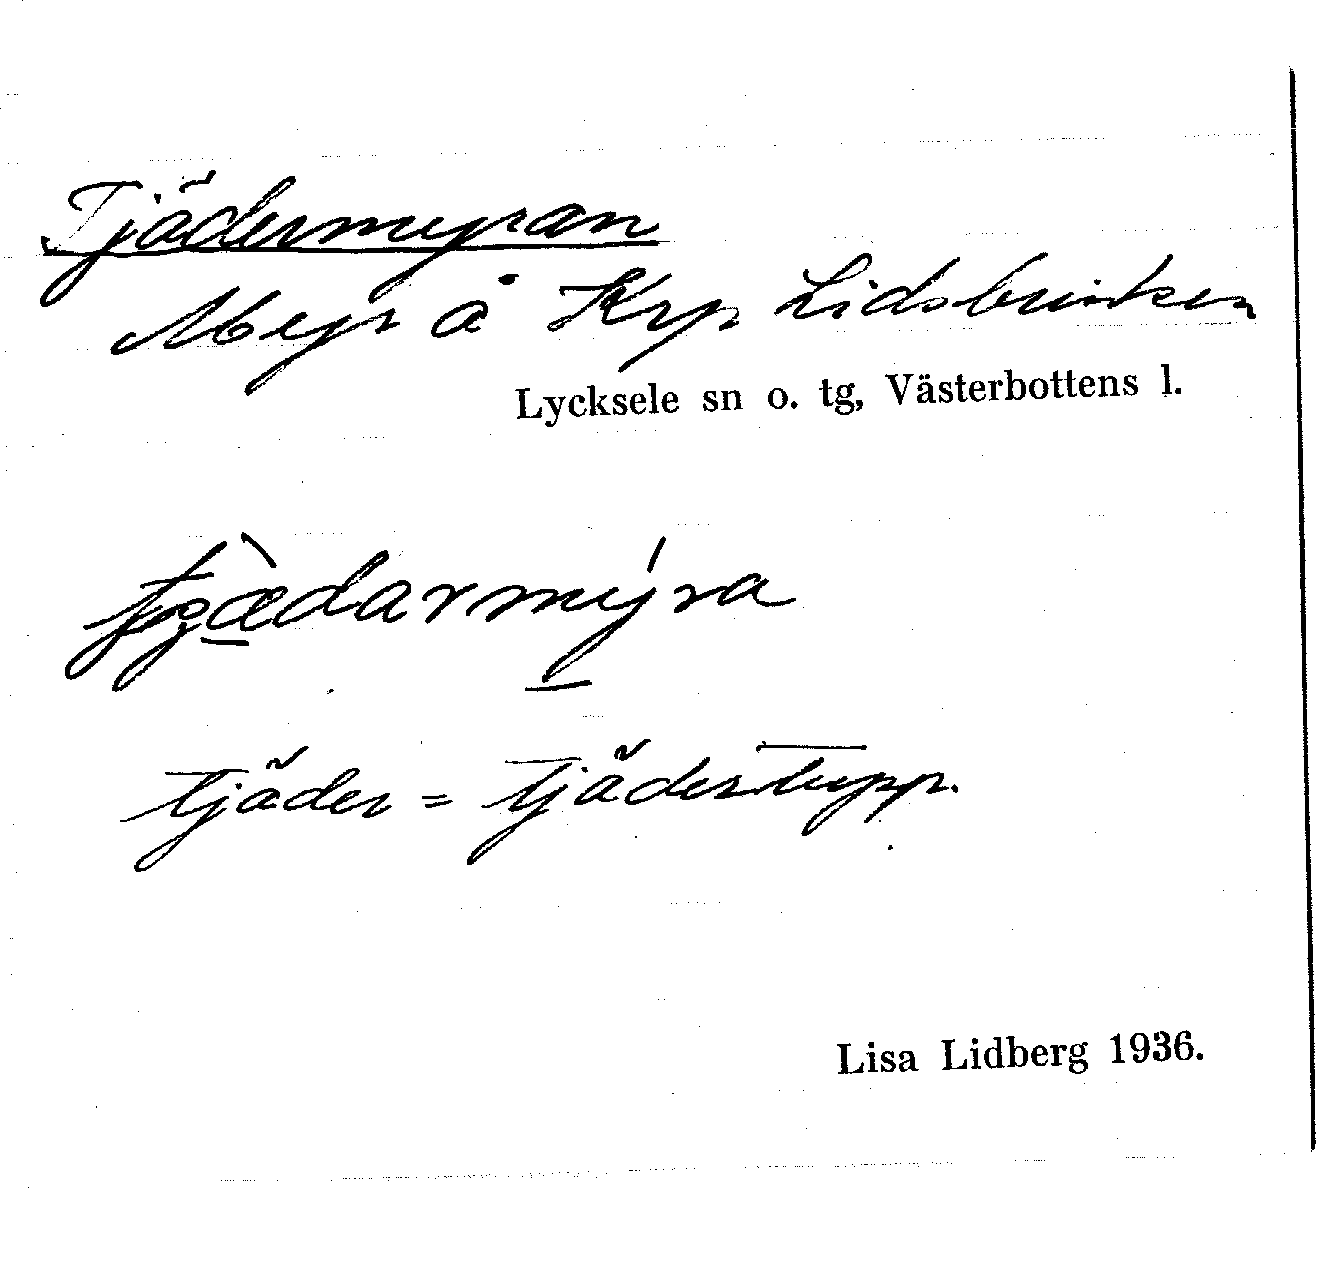 Tjädermyran
Myr å Krp Lidsbrinken
Lycksele sn o. tg, Västerbottens l.
tjäder = tjädertupp.
Lisa Lidberg 1936.